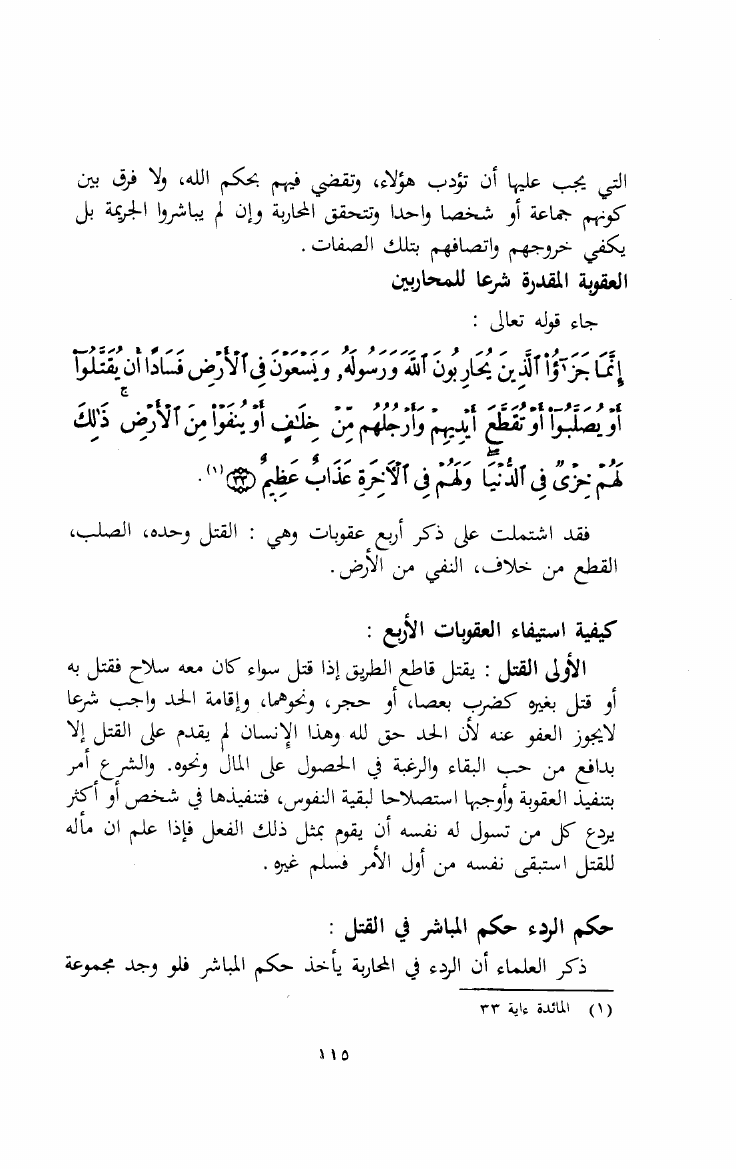 التي يجب عليها أن تؤدب هؤلاء، وتقضي فيهم بحكم الله، ولا فرق بين
كونهم جماعة أو شخصا واحدا وتتحقق المحاربة وإن لم يباشروا الجريمة بل
يكفي خروجهم واتصافهم بتلك الصفات .
العقوبة المقدرة شرعا للمحاربين
جاء قوله تعالى :
إِنَّمَا جَزَٰٓؤُا۟ ٱلَّذِينَ يُحَارِبُونَ ٱللَّهَ وَرَسُولَهُۥ وَيَسْعَوْنَ فِى ٱلْأَرْضِ فَسَادًا أَن يُقَتَّلُوٓا۟
أَوْ يُصَلَّبُوٓا۟ أَوْ تُقَطَّعَ أَيْدِيهِمْ وَأَرْجُلُهُم مِّنْ خِلَٰفٍ أَوْ يُنفَوْا۟ مِنَ ٱلْأَرْضِ ۚ ذَٰلِكَ
لَهُمْ خِزْىٌ فِى ٱلدُّنْيَا ۖ وَلَهُمْ فِى ٱلْأَخِرَةِ عَذَابٌ عَظِيمٌ ٣٣ (١) .
فقد اشتملت على ذكر أربع عقوبات وهي : القتل وحده، الصلب،
القطع من خلاف، النفي من الأرض .
كيفية استيفاء العقوبات الأربع :
الأولى القتل : يقتل قاطع الطريق إذا قتل سواء كان معه سلاح فقتل به
أو قتل بغيره كضرب بعصا، أو حجر، ونحوهما، وإقامة الحد واجب شرعا
لايجوز العفو عنه لأن الحد حق لله وهذا الإنسان لم يقدم على القتل إلا
بدافع من حب البقاء والرغبة في الحصول على المال ونحوه. والشرع أمر
بتنفيذ العقوبة وأوجبها استصلاحا لبقية النفوس، فتنفيذها في شخص أو أكثر
يردع كل من تسول له نفسه أن يقوم بمثل ذلك الفعل فإذا علم ان مأله
للقتل استبقى نفسه من أول الأمر فسلم غيره .
حكم الردء حكم المباشر في القتل :
ذكر العلماء أن الردء في المحاربة يأخذ حكم المباشر فلو وجد مجموعة
(١) المائدة ءاية ٣٣
١١٥